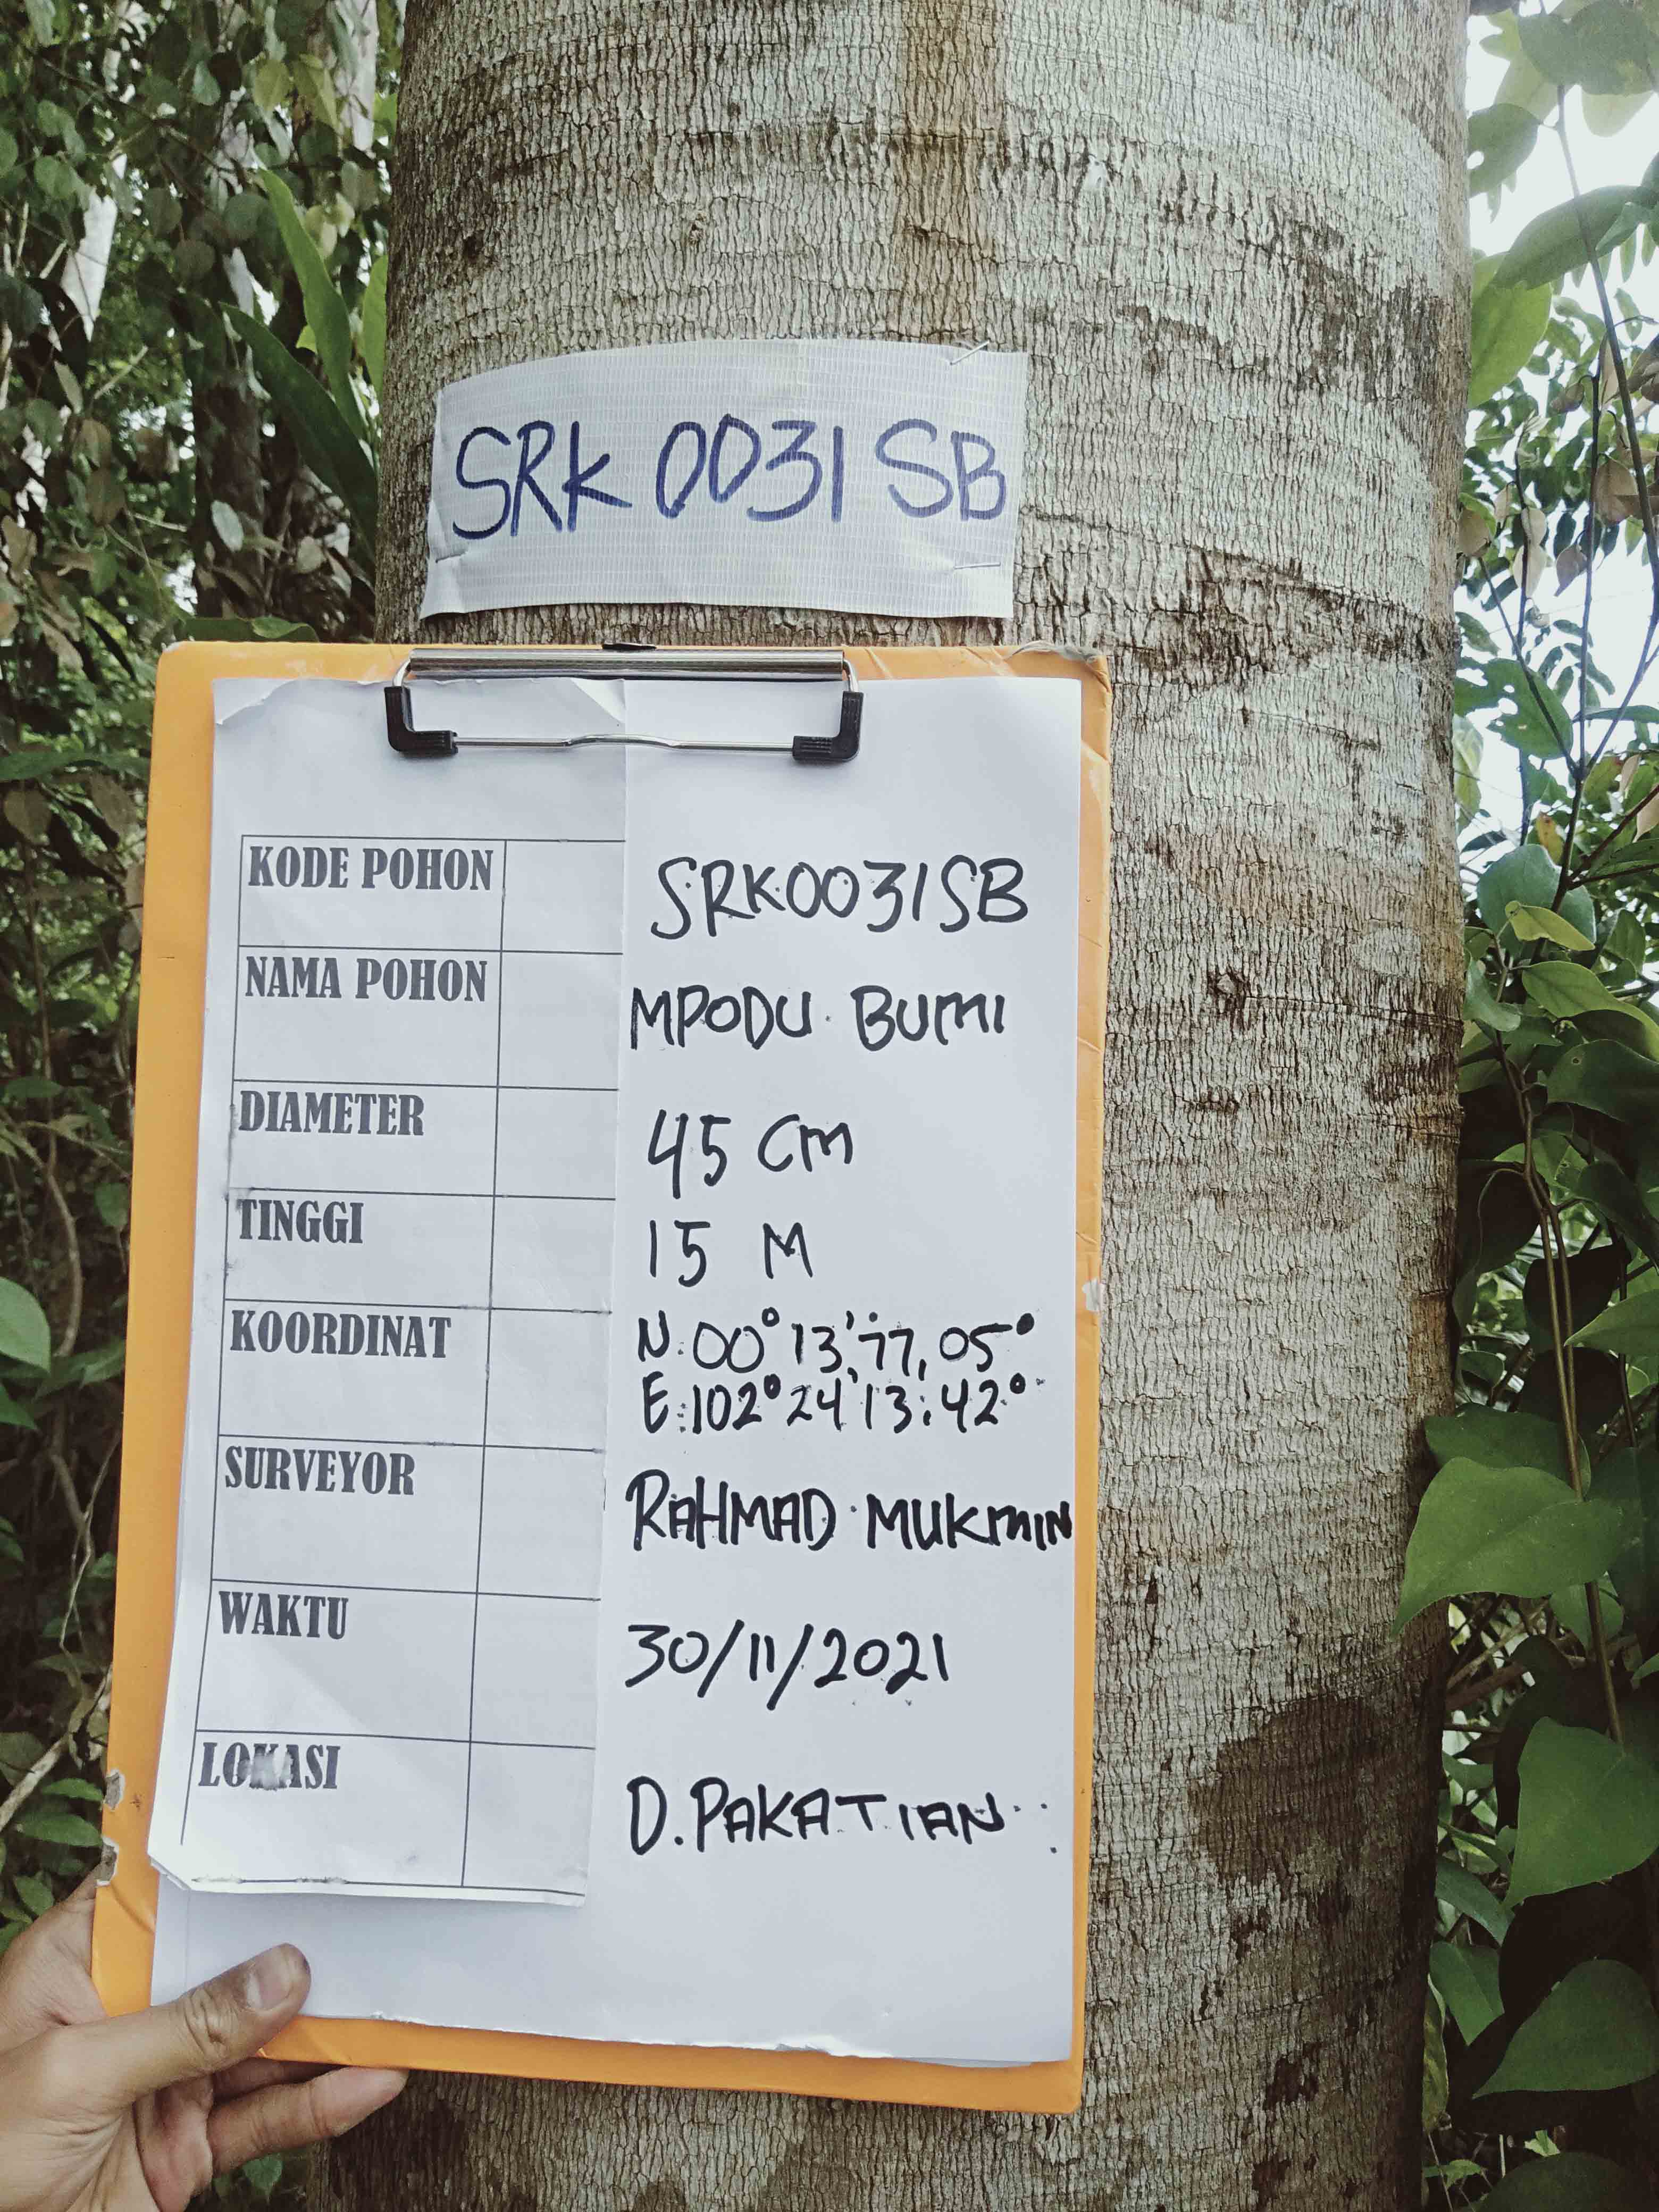 SRK 0031 SB
KODE POHON SRK0031SB
NAMA POHON MPODU BUMI
DIAMETER 45 Cm
TINGGI 15 M
KOORDINAT N:00°13',77,05°
E:102°24'13:42°
SURVEYOR RAHMAD MUKMIN
WAKTU 30/11/2021
LOKASI D.PAKATIAN